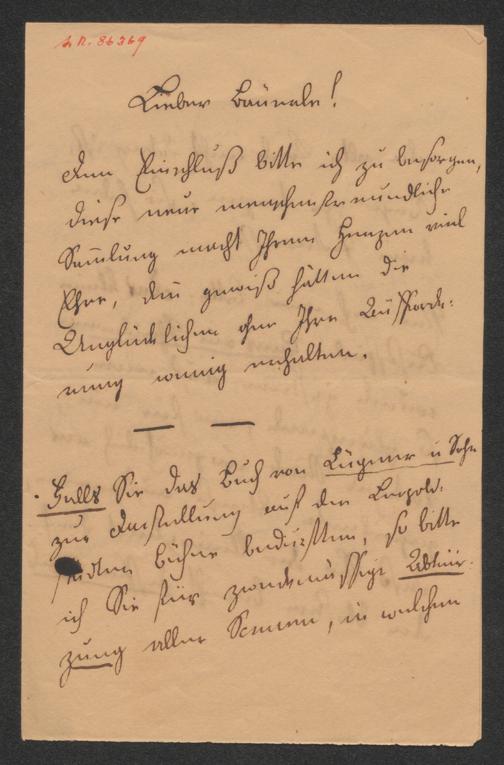 H.N. 86369
Lieber Bäuerle!
Den Einschluß bitte ich zu besorgen,
diese neue menschenfreundliche
Sammlung macht Ihrem Herzen viel
Ehre, denn gewiß hätten die
Unglücklichen ohne Ihre Aufforde-
rung wenig erhalten.
Falls Sie das Buch von Lügner u Sohn
zur Darstellung auf der Leopold-
städter Bühne bedürften, so bitte
ich Sie für zweckmässige Abkür-
zung aller Scenen, in welchen